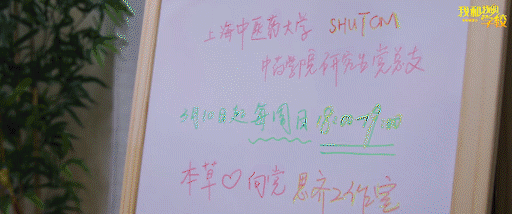 我和我的学校
上海中医药大学 SHUTCM
中药学院研究生党总支
3月10日起每周日 18:00-19:00
本草♡向党 思齐工作室